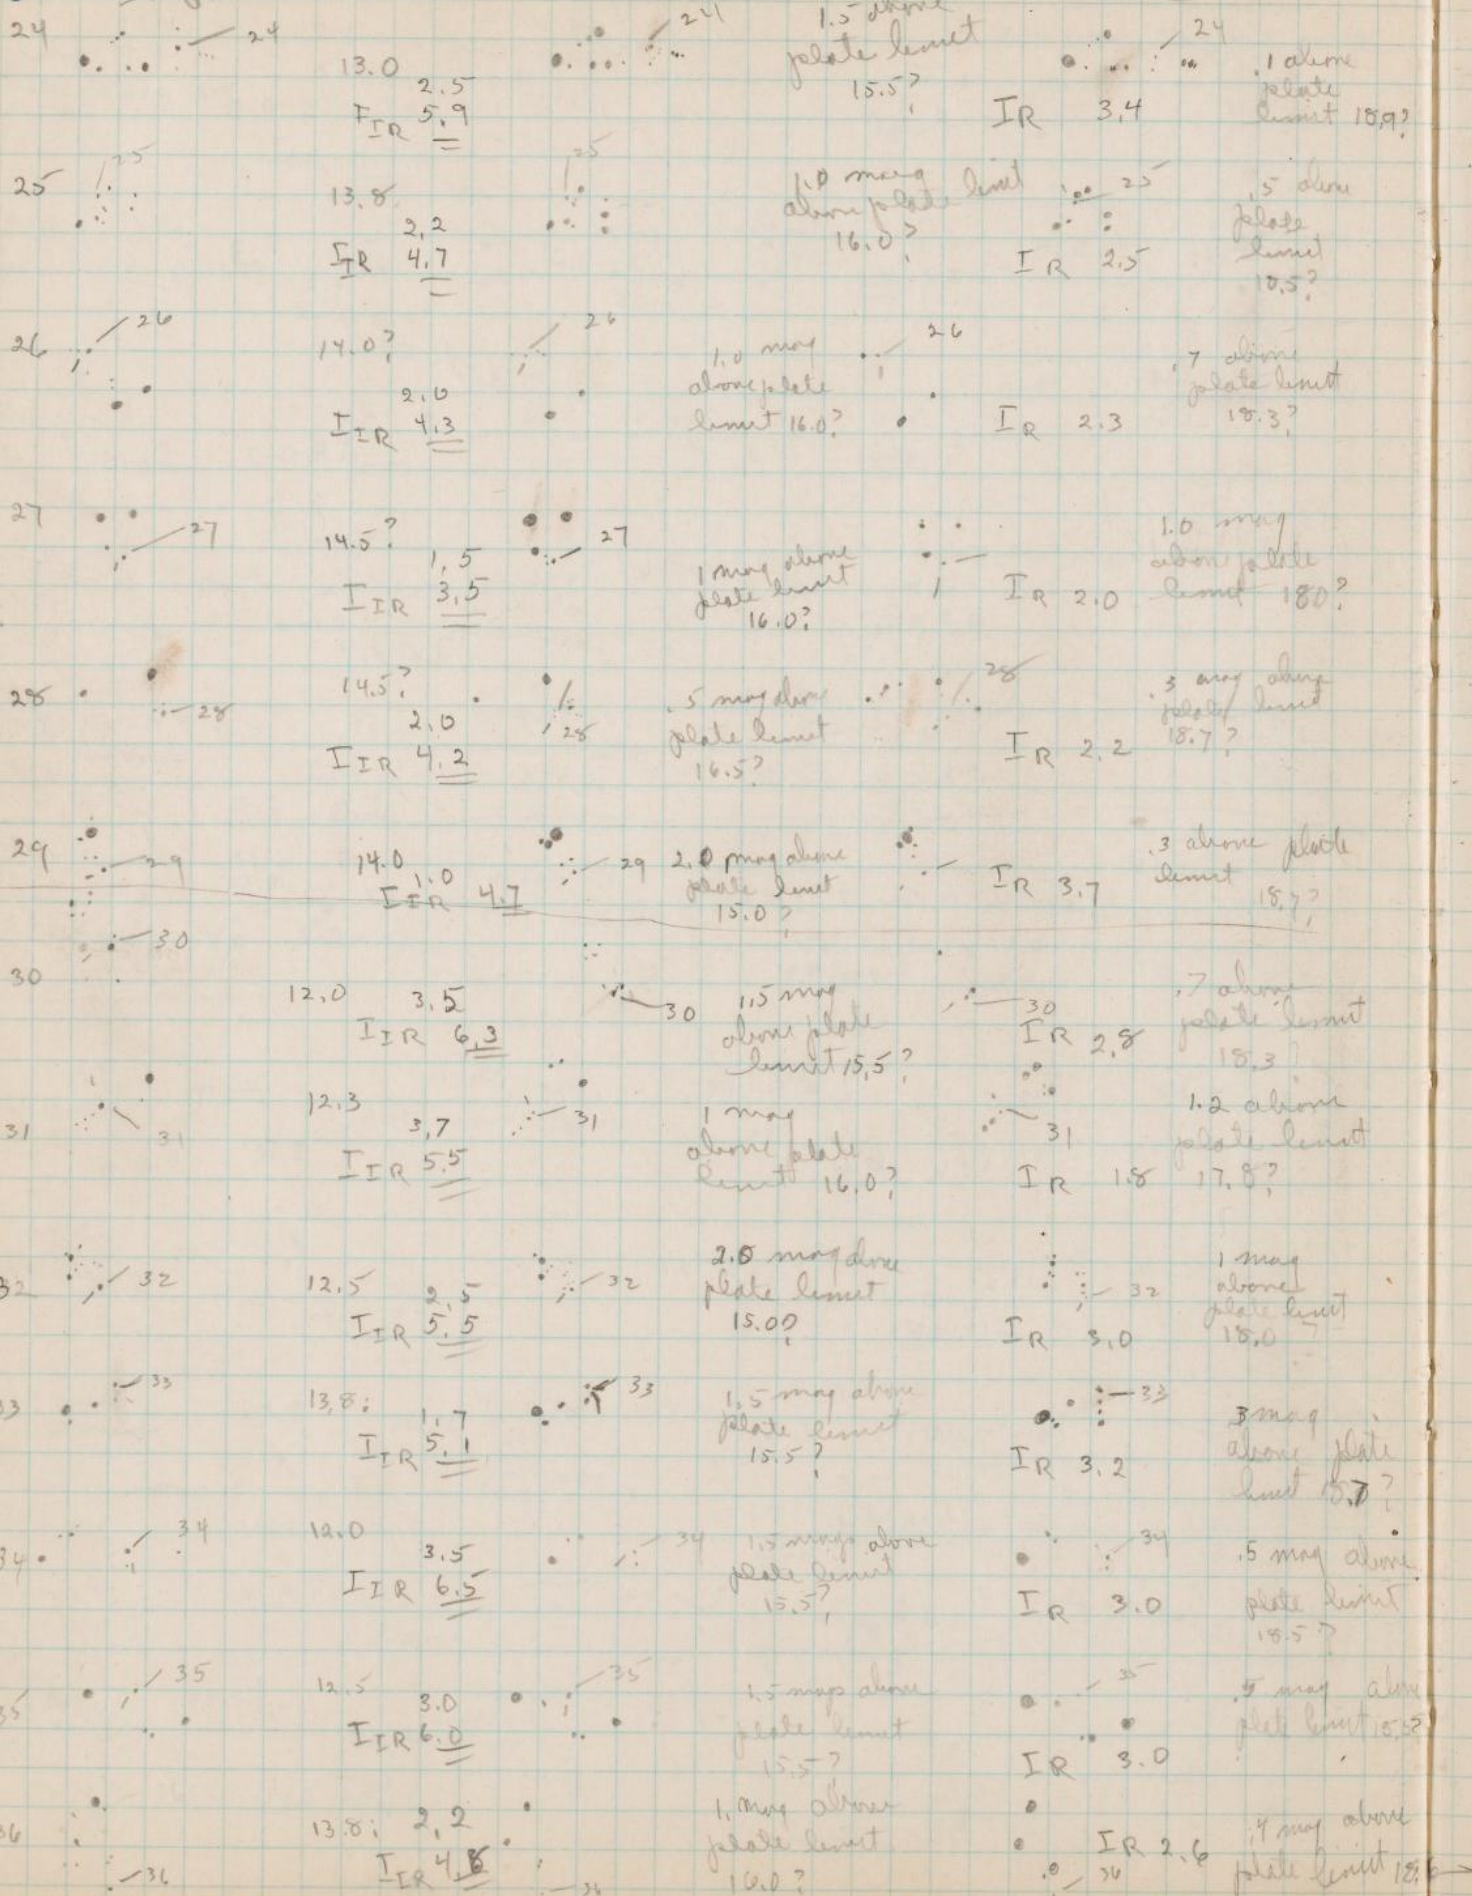 24
24
13.0
2.5
I IR 5.9
24
1.5 above
plate limit
15.5?
24
IR 3.4
.1 above
plate
limit 18.9?
25
25
13.8
2.2
I IR 4.7
25
1.0 mag
above plate limit
16.0?
25
IR 2.5
.5 above
plate
limit
18.5?
26
26
14.0?
2.0
I IR 4.3
26
1.0 mag
above plate
limit 16.0?
26
IR 2.3
.7 above
plate limit
18.3?
27
27
14.5?
1.5
I IR 3.5
27
1 mag above
plate limit
16.0?
IR 2.0
1.0 mag
above plate
limit 18.0?
28
28
14.5?
2.0
I IR 4.2
28
.5 mag above
plate limit
16.5?
28
IR 2.2
.3 mag above
plate limit
18.7?
29
29
14.0
1.0
I IR 4.7
29
2.0 mag above
plate limit
15.0?
IR 3.7
.3 above plate
limit
18.7?
30
30
12.0
3.5
I IR 6.3
30
1.5 mag
above plate
limit 15.5?
30
IR 2.8
.7 above
plate limit
18.3
31
31
12.3
3.7
I IR 5.5
31
1 mag
above plate
limit 16.0?
31
IR 1.8
1.2 above
plate limit
17.8?
32
32
12.5
2.5
I IR 5.5
32
2.0 mag above
plate limit
15.0?
32
IR 3.0
1 mag
above
plate limit
18.0?
33
33
13.8:
1.7
I IR 5.1
33
1.5 mag above
plate limit
15.5?
33
IR 3.2
.3 mag
above plate
limit 18.7?
34
34
12.0
3.5
I IR 6.5
34
1.5 mags above
plate limit
15.5?
34
IR 3.0
.5 mag above
plate limit
18.5?
35
35
12.5
3.0
I IR 6.0
35
1.5 mags above
plate limit
15.5?
35
IR 3.0
.5 mag above
plate limit 18.5?
36
36
13.8:
2.2
I IR 4.8
36
1. mag above
plate limit
16.0?
36
IR 2.6
.4 mag above
plate limit